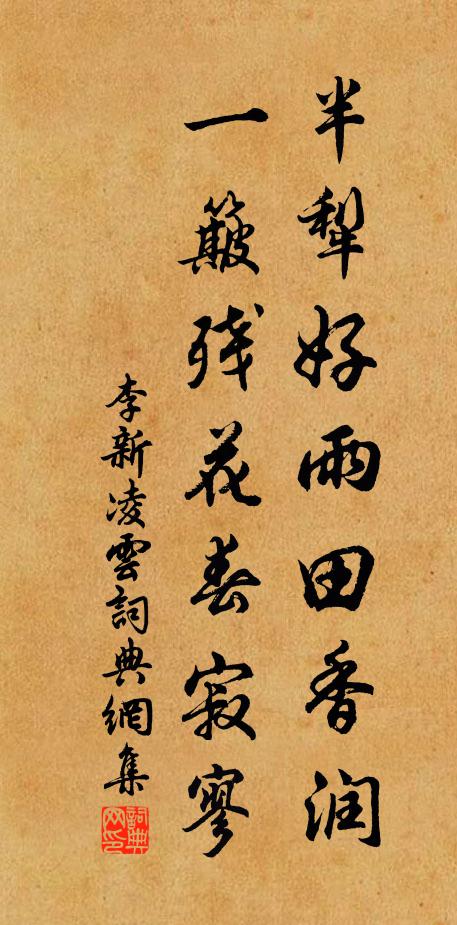 半犁好雨田香润
一簸残花春寂寥
李新凌雲詞典網集
詞典网印